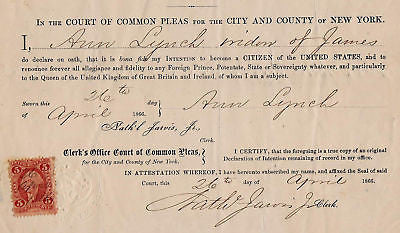 IN THE COURT OF COMMON PLEAS FOR THE CITY AND COUNTY OF NEW YORK.
I, Ann Lynch widow of James
do declare on oath, that it is bona fide my INTENTION to become a CITIZEN of the UNITED STATES, and to
renounce forever all allegiance and fidelity to any Foreign Prince, Potentate, State or Sovereignty whatever, and particularly
to the Queen of the United Kingdom of Great Britain and Ireland, of whom I am a subject.
Sworn this 26th day
of April 1866.
Ann Lynch
Nath'l Jarvis, Jr.
Clerk.
Clerk's Office Court of Common Pleas,
for the City and County of New York.
I CERTIFY, that the foregoing is a true copy of an original
Declaration of Intention remaining of record in my office.
IN ATTESTATION WHEREOF, I have hereunto subscribed my name, and affixed the Seal of said
Court, this 26th day of April 1866.
Nathl Jarvis Jr Clerk.
5 5